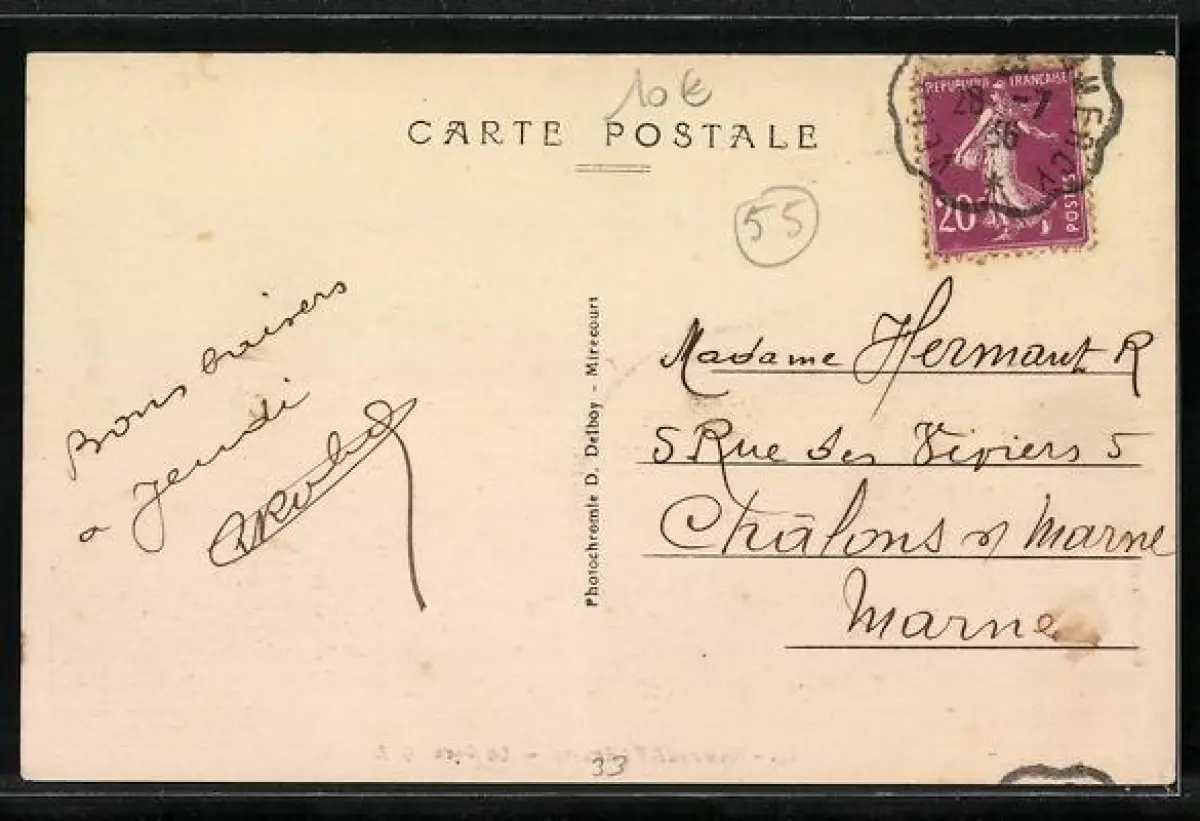 10 €
CARTE POSTALE
REPUBLIQUE FRANCAISE
28 -7
36
*
MERCY
20
POSTES
55
Bons baisers
a jeudi
Photochromie D. Delboy - Mirecourt
Madame Hermant R
5 Rue des Viviers 5
Châlons s/ Marne
Marne
33